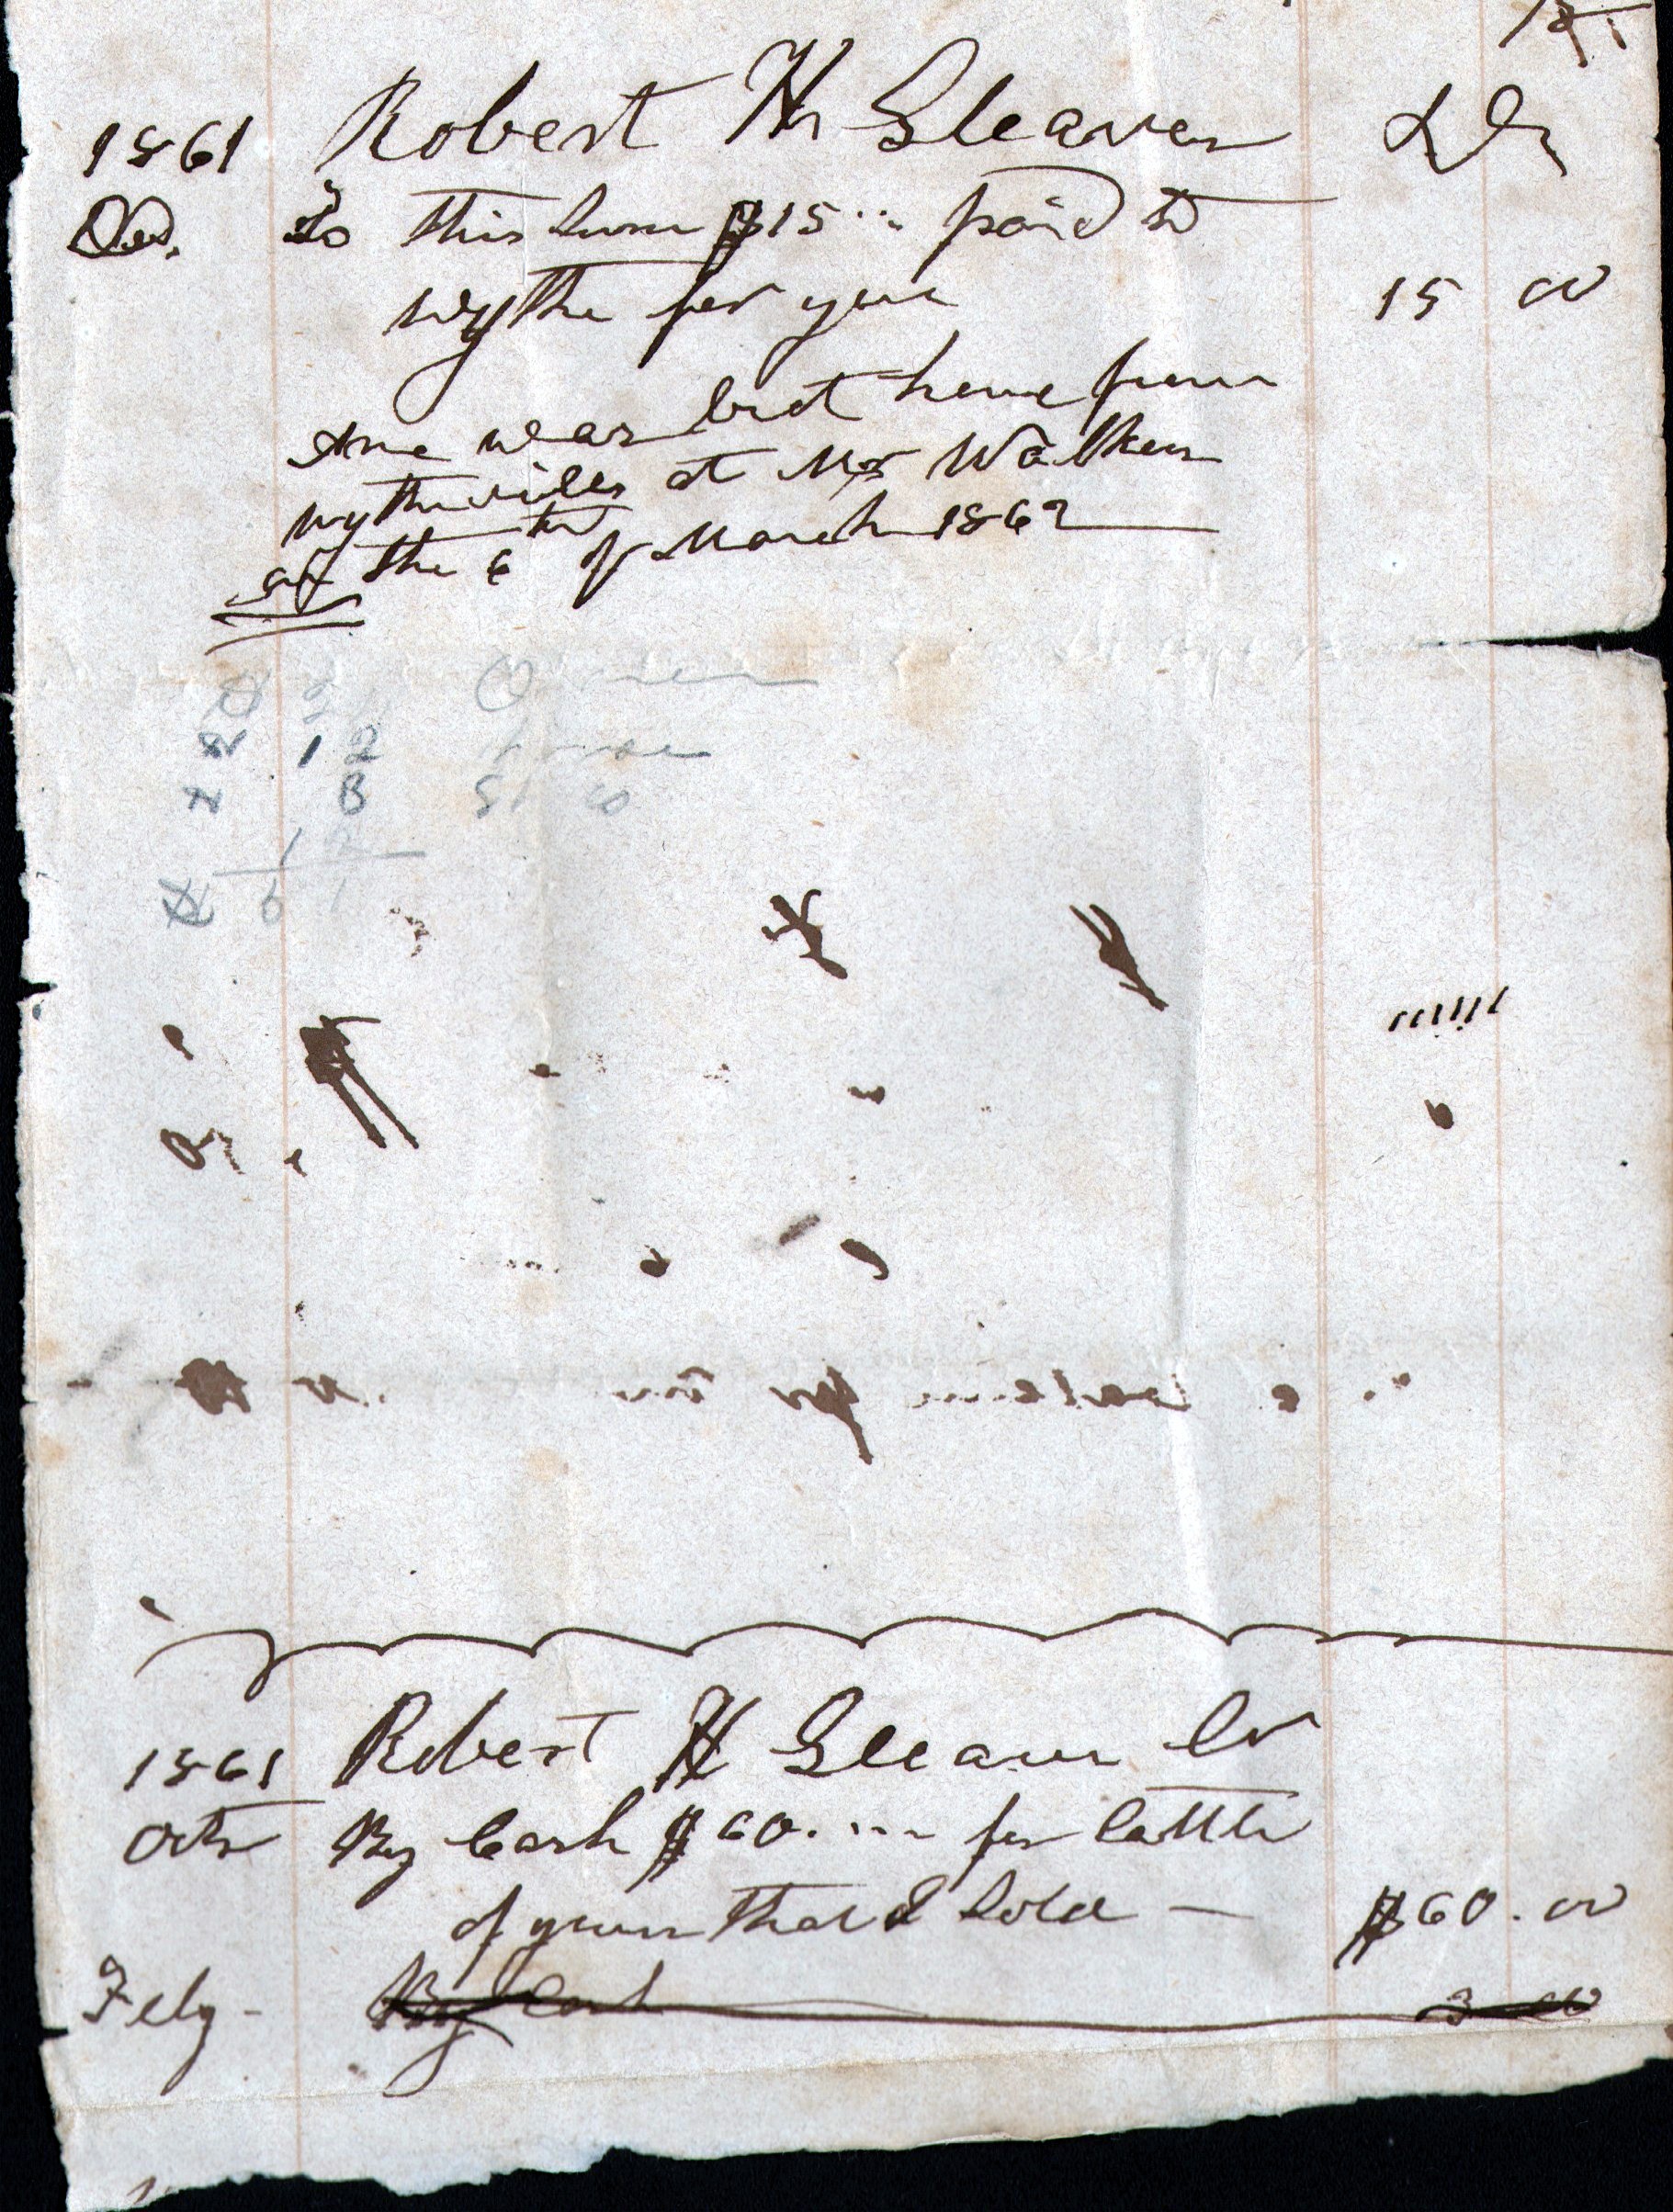 1861 Robert H Gleaves Dr
Dec. To this sum $15 paid to
wythe for you 15 00
Ame was brot home from
wytheville at Mr Walkers
on the 6th of March 1862
12
8
12
6 1
1861 Robert H Gleaves Cr
Octr By Cash $60. for Cattle
of yours that I sold — $60.00
Feby - By Cash 3 00